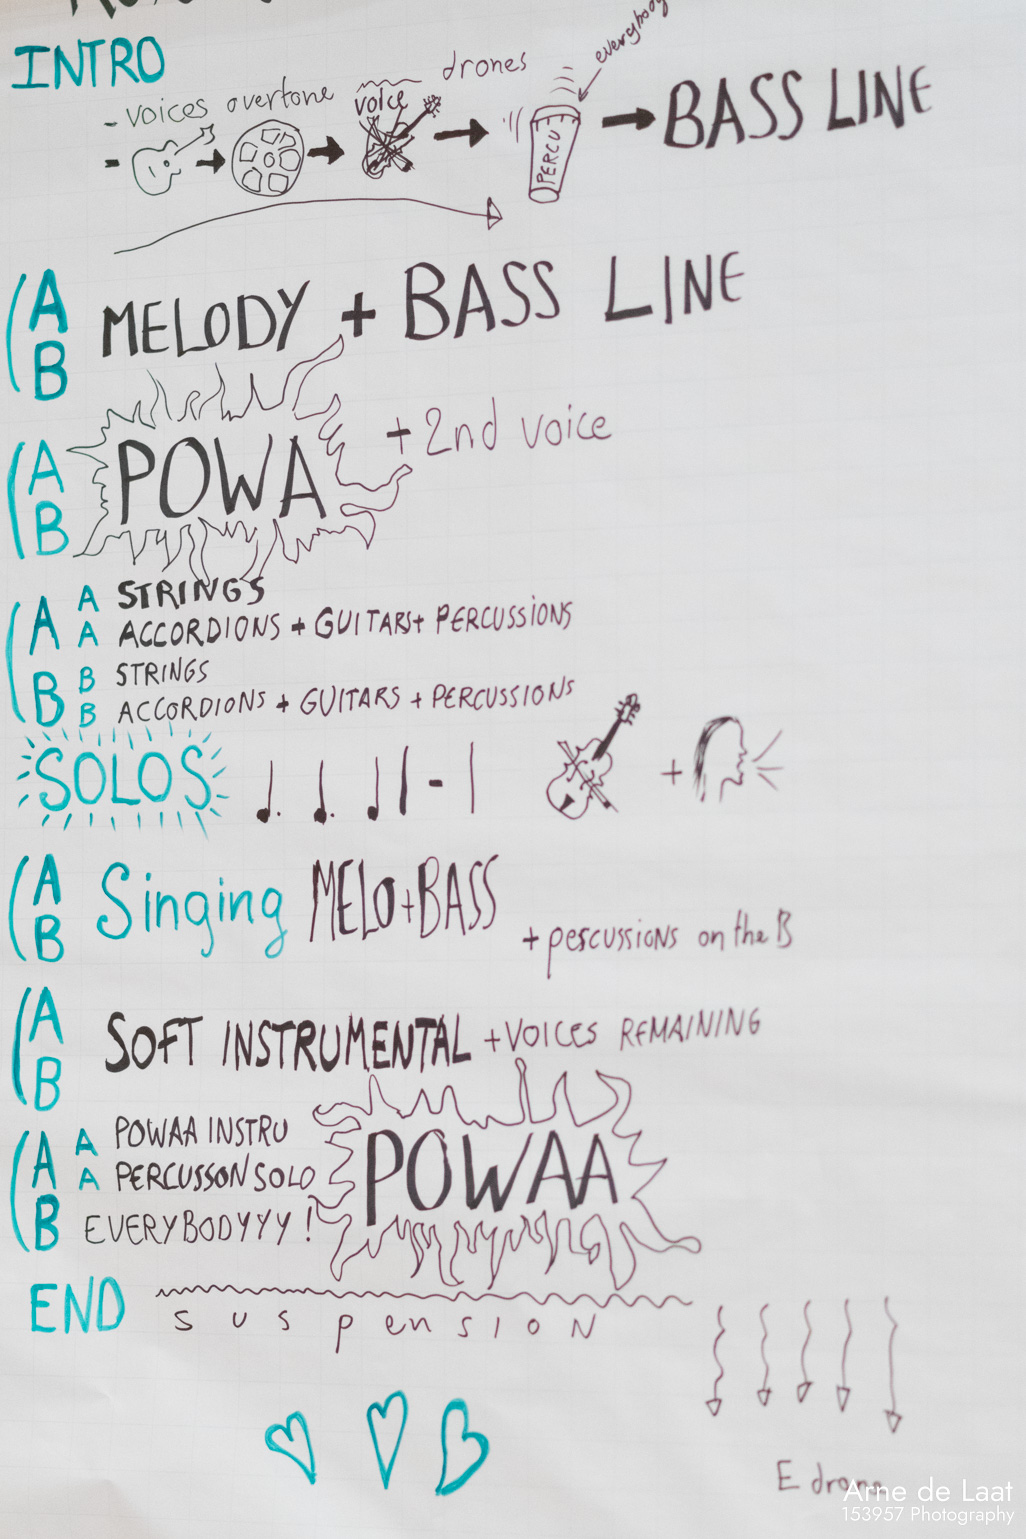 INTRO
- voices overtone voice drones everybody
PERCU
BASS LINE
A
B
MELODY + BASS LINE
A
B
POWA + 2nd voice
A
B
A STRINGS
A ACCORDIONS + GUITARS + PERCUSSIONS
B STRINGS
B ACCORDIONS + GUITARS + PERCUSSIONS
SOLOS
+
A
B
Singing MELO+BASS
+ percussions on the B
A
B
SOFT INSTRUMENTAL + VOICES REMAINING
A
B
A POWAA INSTRU
A PERCUSSON SOLO
EVERYBODYYY !
POWAA
END
suspension
E drone
Arne de Laat
153957 Photography